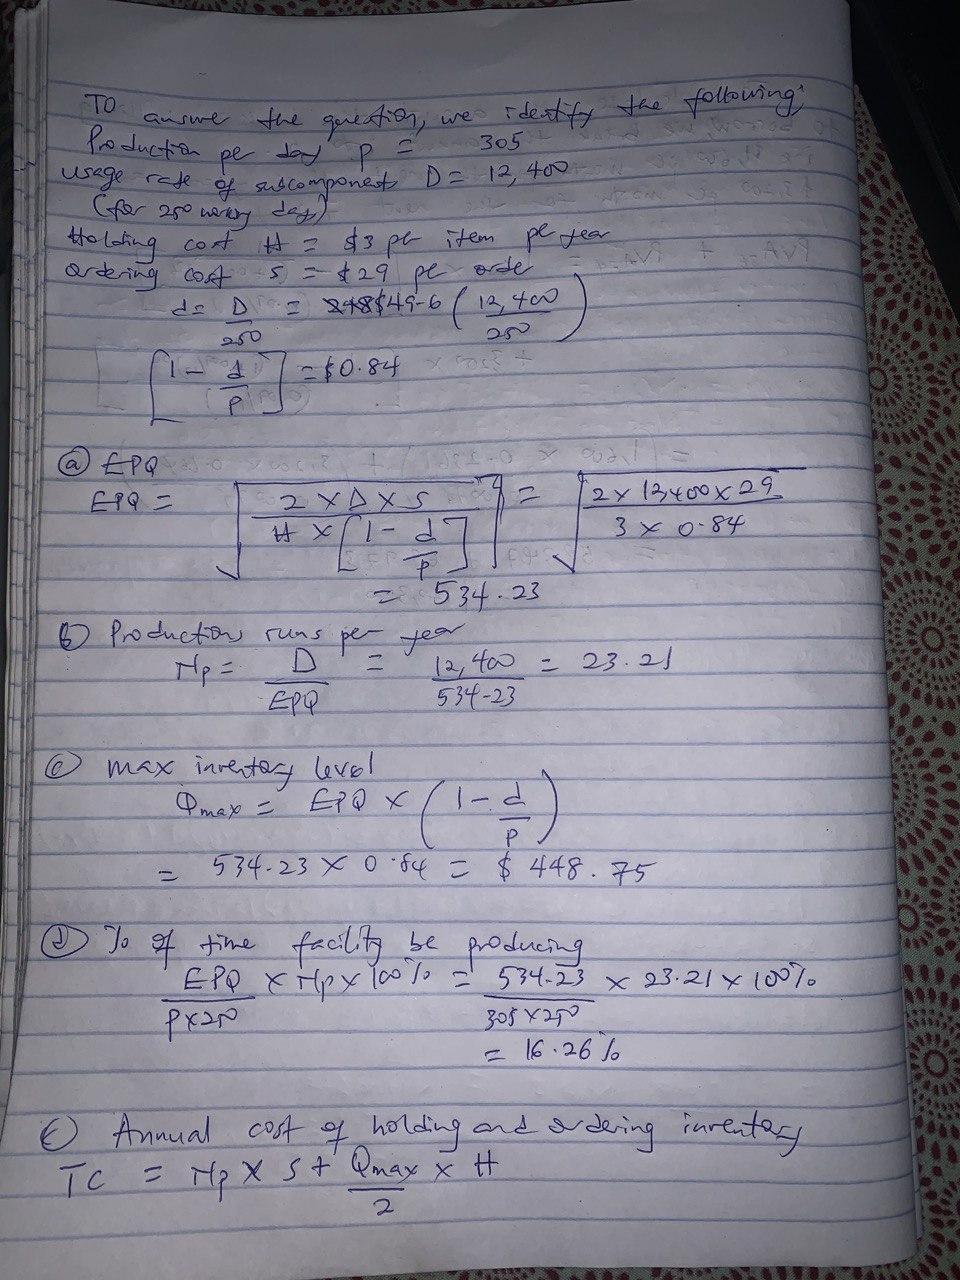 TO answe the question, we identify the following:
Production per day P = 305
usage rate of subcomponents D = 12,400
(for 250 working days)
Holding cost H = $3 per item per year
ordering cost S = $29 per order
d = D/250 = $49-6 (12,400/250)
[1 - d/P] = $0.84
(a) EPQ
EPQ = √(2 × D × S / H × [1 - d/P]) = √(2 × 12400 × 29 / 3 × 0.84)
= 534.23
(b) Productions runs per year
Np = D/EPQ = 12,400/534-23 = 23.21
(c) max inventory level
Qmax = EPQ × (1 - d/P)
= 534.23 × 0.84 = $448.75
(d) % of time facility be producing
EPQ/P×250 × Np × 100% = 534.23/305×250 × 23.21 × 100%
= 16.26%
(e) Annual cost of holding and ordering inventory
TC = Np × S + Qmax/2 × H